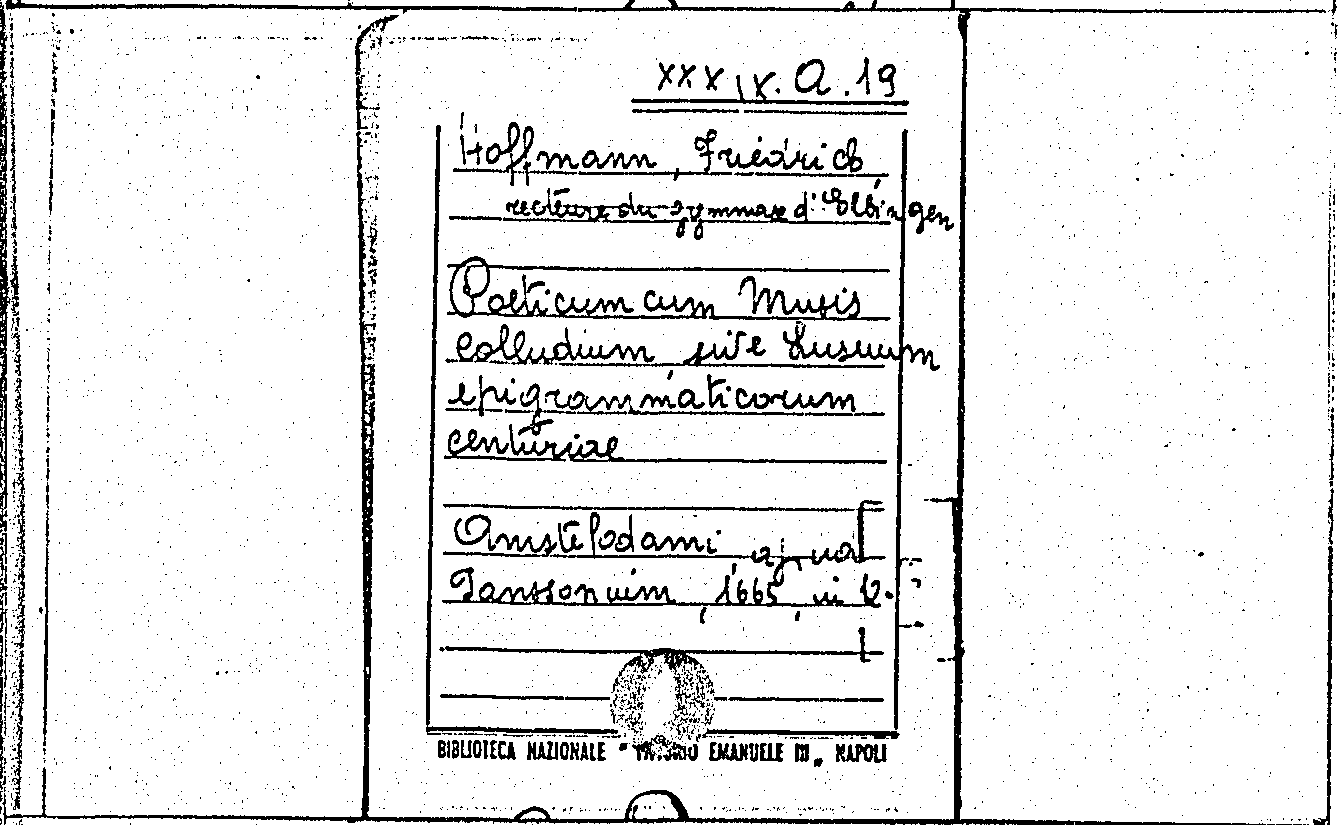 XXXIX. A. 19
Hoffmann, Friedrich
recteure du gymmase d'Elbingen
Poeticum cum Musis
colludium, sive Lusuum
epigrammaticorum
centuriae
Amstelodami, apud
Janssonium, 1665, in 12.
BIBLIOTECA NAZIONALE "VITTORIO EMANUELE III" NAPOLI